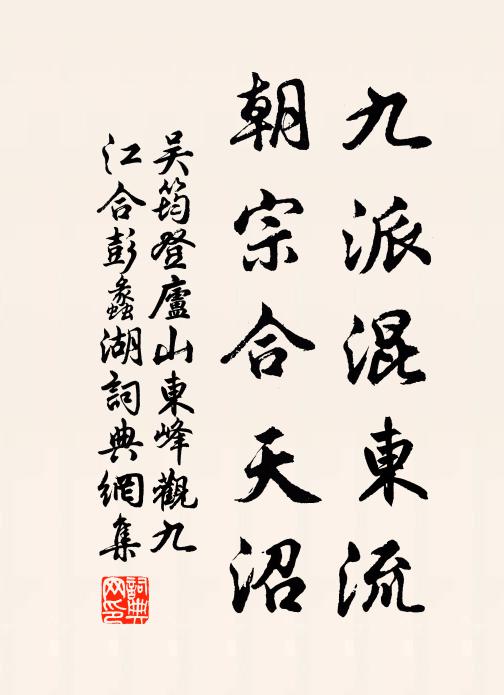 九派混東流
朝宗合天沼
吴筠登廬山東峰觀九
江合彭蠡湖詞典網集
詞典
网印